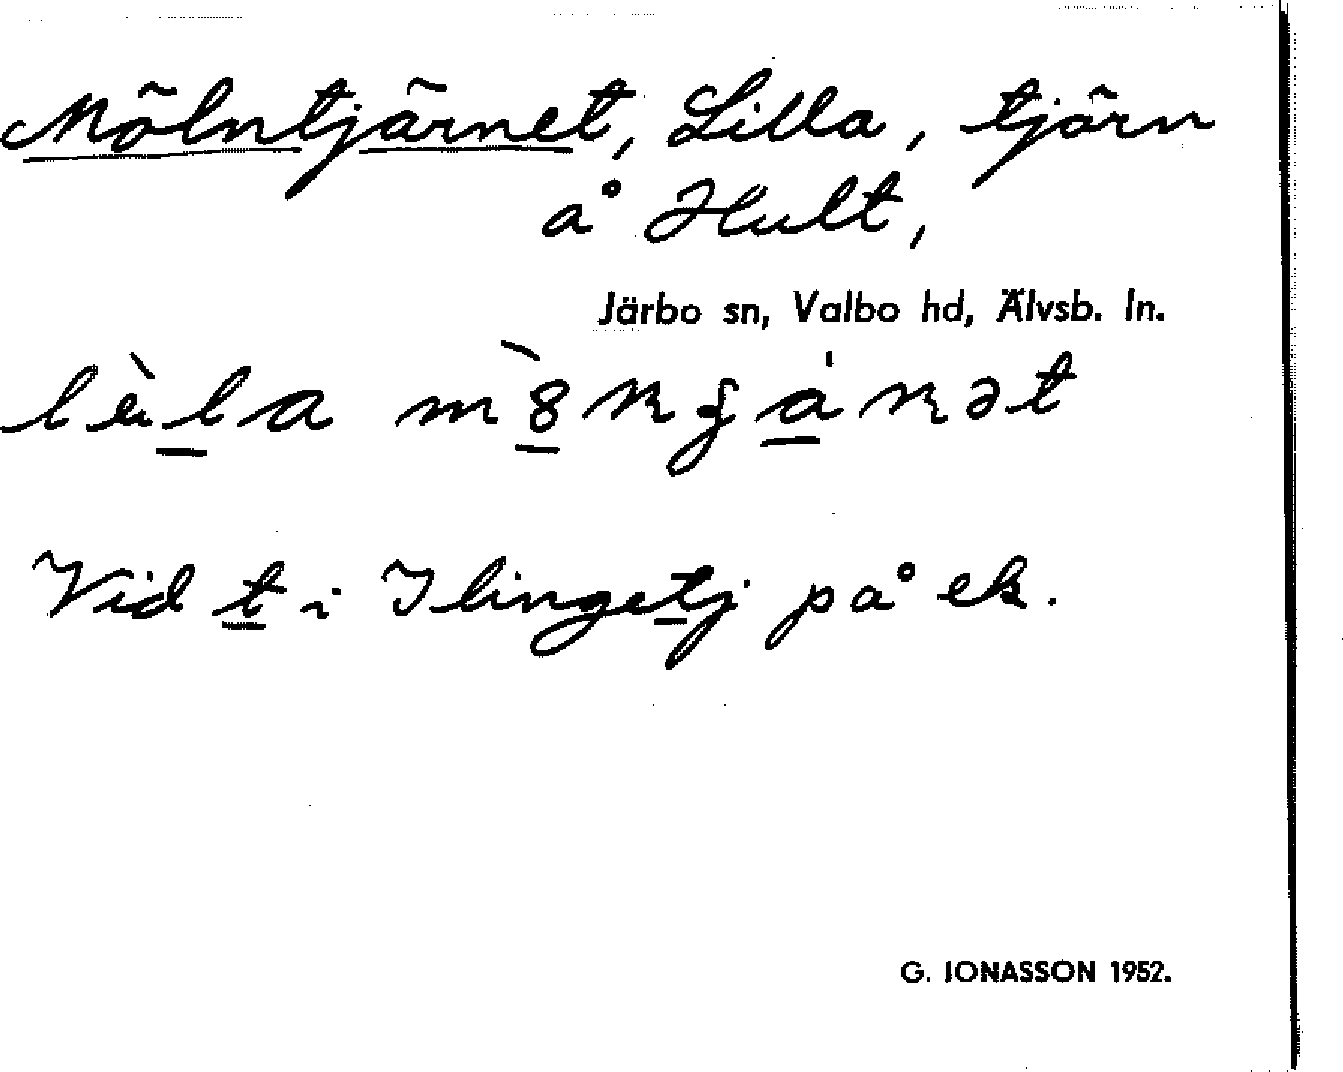 Mölntjärnet, Lilla, tjärn
å Hult,
Järbo sn, Valbo hd, Älvsb. ln.
Vid t i Ilingetj på ek.
G. IONASSON 1952.